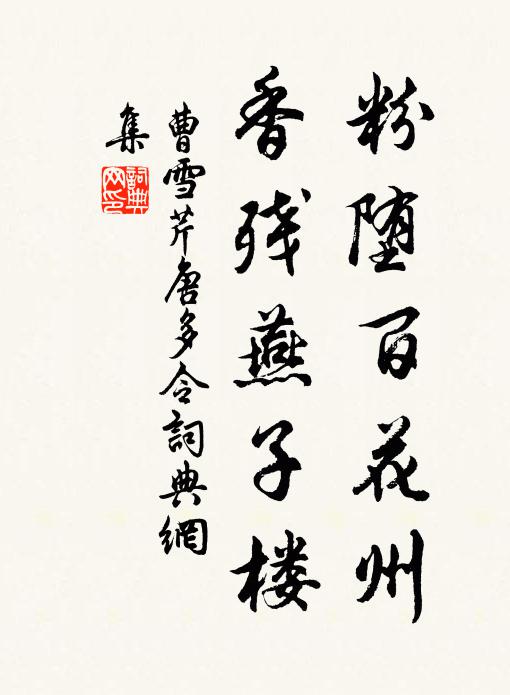 粉堕百花州
香残燕子楼
曹雪芹唐多令詞典網
集
詞典网印